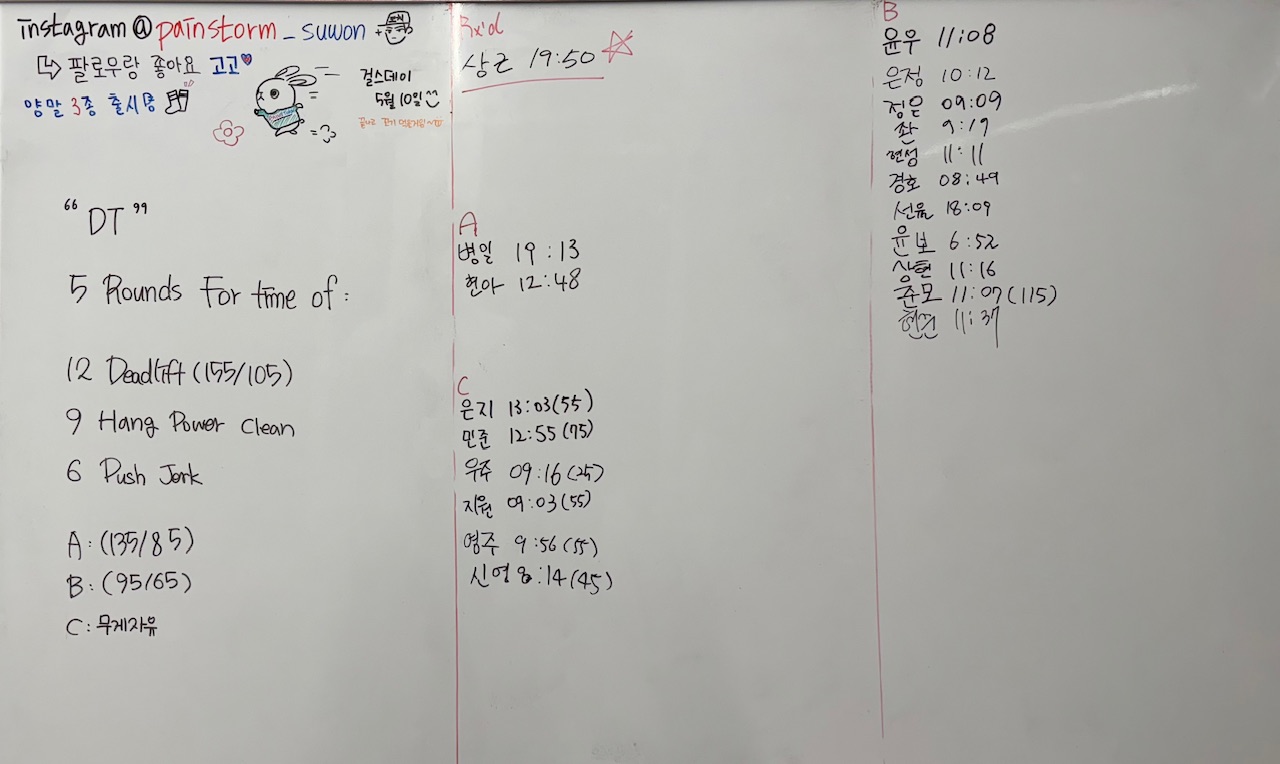 instagram @ painstorm _ suwon +
팔로우랑 좋아요 고고
양말 3종 출시중
걸스데이
5월 10일
"DT"
5 Rounds For time of :
12 Deadlift (155/105)
9 Hang Power Clean
6 Push Jerk
A : (135/85)
B : (95/65)
C : 무게자유
Rx'd
상근 19:50
A
병일 19:13
현아 12:48
C
은지 13:03 (55)
민준 12:55 (75)
우주 09:16 (25)
지원 09:03 (55)
영주 9:56 (55)
신영 8:14 (45)
B
윤우 11:08
은정 10:12
정은 09:09
9:19
현성 11:11
경호 08:49
선율 18:09
윤보 6:52
상현 11:16
준모 11:07 (115)
11:37